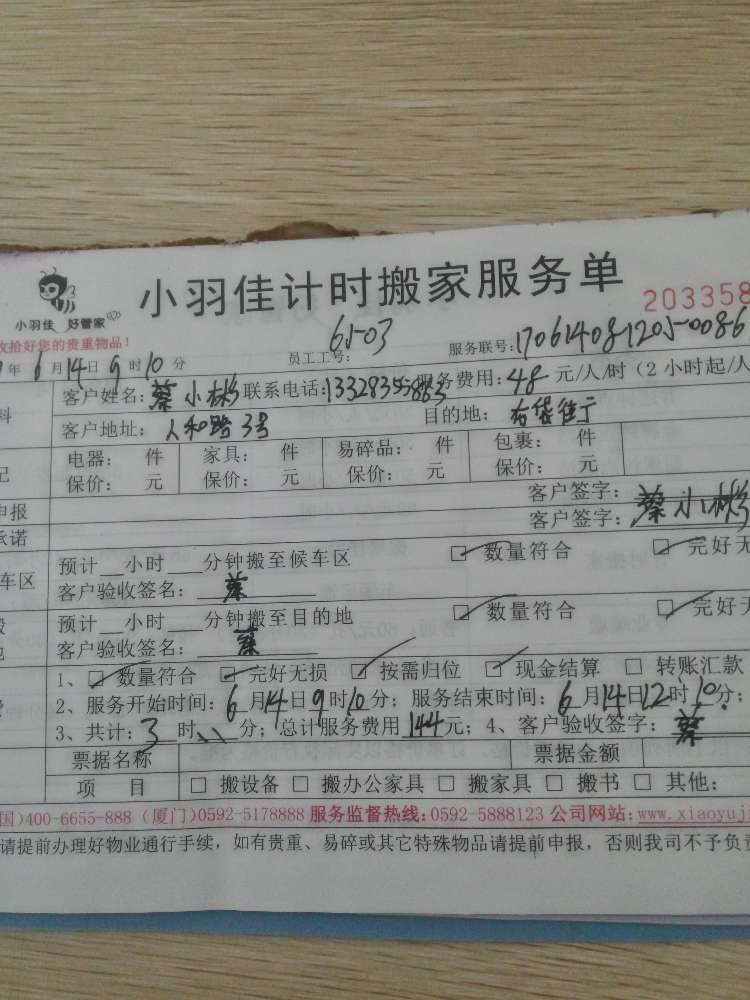 小羽佳计时搬家服务单
小羽佳 好管家
203358
收拾好您的贵重物品！
员工工号: 6503
服务联号: 170614081205-0086
年 6 月 14 日 9 时 10 分
客户姓名: 蔡小彬 联系电话: 服务费用: 48 元/人/时 (2 小时起/人
客户地址: 人和路3号 目的地:
电器: 件 家具: 件 易碎品: 件 包裹: 件
保价: 元 保价: 元 保价: 元 保价: 元
申报 客户签字:
承诺 客户签字: 蔡小彬
预计__小时 ___分钟搬至候车区 ☑ 数量符合 ☑ 完好无
车区
客户验收签名: 蔡
预计__小时 ___分钟搬至目的地 ☑ 数量符合 ☑ 完好无
客户验收签名: 蔡
1、☑ 数量符合 ☑ 完好无损 ☑ 按需归位 ☑ 现金结算 □ 转账汇款
2、服务开始时间: 6 月 14 日 9 时 10 分; 服务结束时间: 6 月 14 日 12 时 10 分;
3、共计: 3 时 分; 总计服务费用 144 元; 4、客户验收签字: 蔡
票据名称 票据金额
项 目 □ 搬设备 □ 搬办公家具 □ 搬家具 □ 搬书 □ 其他:
国)400-6655-888 (厦门)0592-5178888 服务监督热线:0592-5888123 公司网站: www.xiaoyuj
请提前办理好物业通行手续, 如有贵重、易碎或其它特殊物品请提前申报, 否则我司不予负责